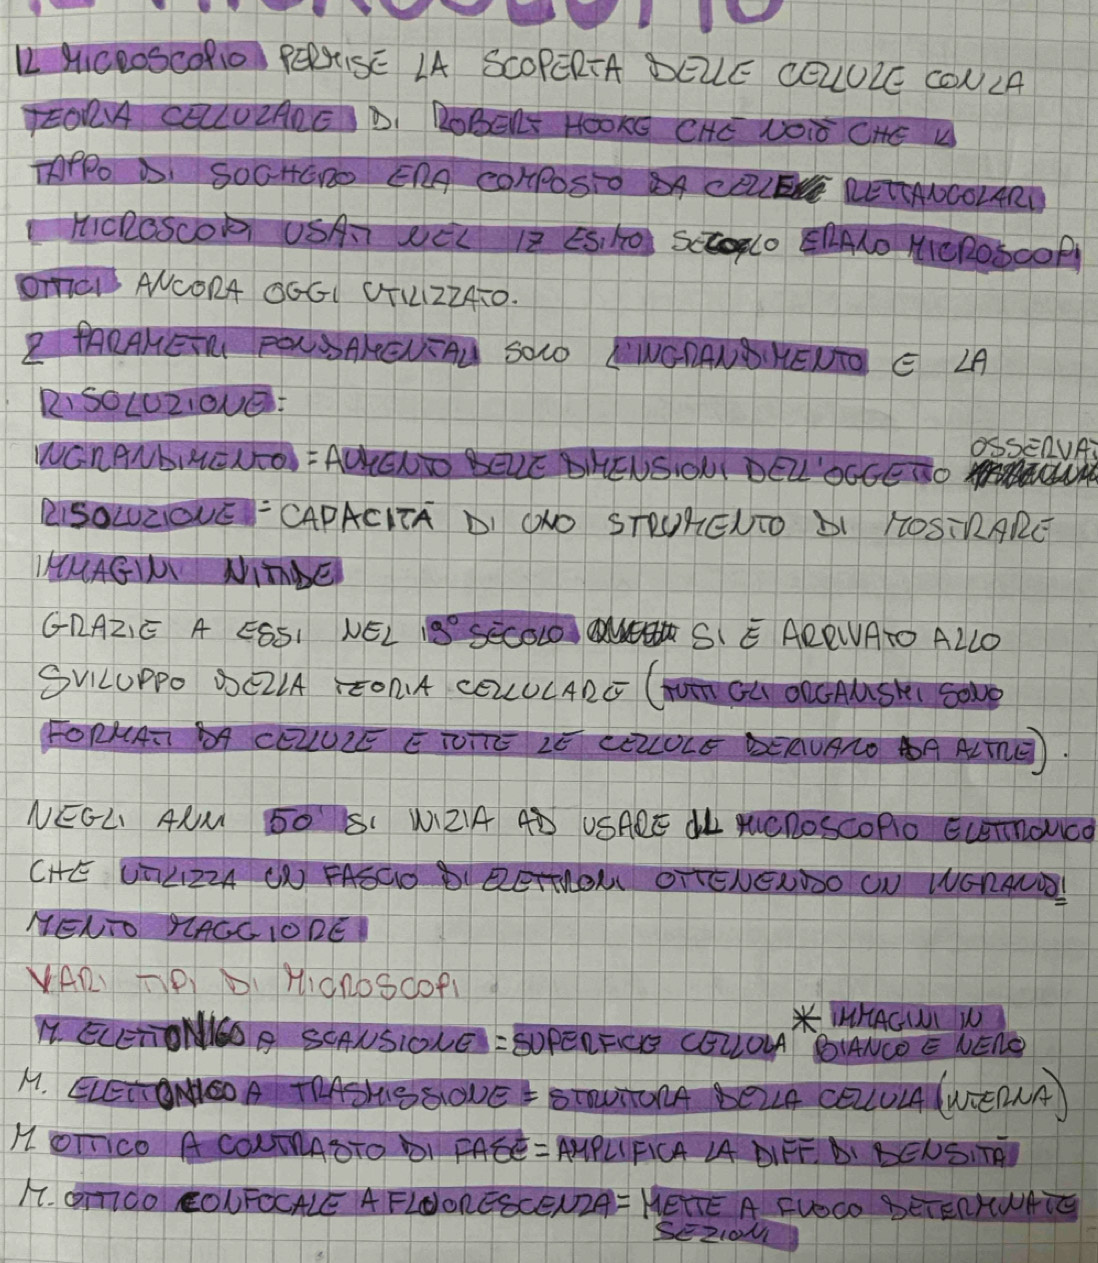 IL MICROSCOPIO
IL MICROSCOPIO PERMISE LA SCOPERTA DELLE CELLULE CON LA
TEORIA CELLULARE DI ROBERT HOOKE CHE NOTÒ CHE IL
TAPPO DI SUGHERO ERA COMPOSTO DA CELLE RETTANGOLARI
I MICROSCOPI USATI NEL 17 ESIMO SECOLO ERANO MICROSCOPI
OTTICI ANCORA OGGI UTILIZZATO.
2 PARAMETRI FONDAMENTALI SONO L'INGRANDIMENTO E LA
RISOLUZIONE:
INGRANDIMENTO = AUMENTO DELLE DIMENSIONI DELL'OGGETTO OSSERVAT
RISOLUZIONE = CAPACITÀ DI UNO STRUMENTO DI MOSTRARE
IMMAGINI NITIDE
GRAZIE A ESSI NEL 19° SECOLO SI È ARRIVATO ALLO
SVILUPPO DELLA TEORIA CELLULARE (TUTTI GLI ORGANISMI SONO
FORMATI DA CELLULE E TUTTE LE CELLULE DERIVANO DA ALTRE).
NEGLI ANNI 50' SI INIZIA AD USARE IL MICROSCOPIO ELETTRONICO
CHE UTILIZZA UN FASCIO DI ELETTRONI OTTENENDO UN INGRANDI=
MENTO MAGGIORE
VARI TIPI DI MICROSCOPI
M. ELETTONICO A SCANSIONE = SUPERFICIE CELLULA * IMMAGINI IN
BIANCO E NERO
M. ELETTONICO A TRASMISSIONE = STRUTTURA DELLA CELLULA (INTERNA)
M OTTICO A CONTRASTO DI FASE = AMPLIFICA LA DIFF. DI DENSITÀ
M. OTTICO CONFOCALE A FLUORESCENZA = METTE A FUOCO DETERMINATE
SEZIONI